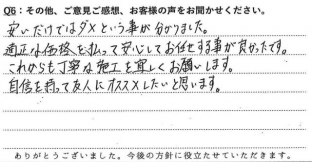 Q6：その他、ご意見ご感想、お客様の声をお聞かせください。
安いだけではダメという事が分かりました。
適正な価格を払って安心してお任せする事が良かったです。
これからも丁寧な施工を宜しくお願いします。
自信を持って友人にオススメしたいと思います。
ありがとうございました。今後の方針に役立たせていただきます。